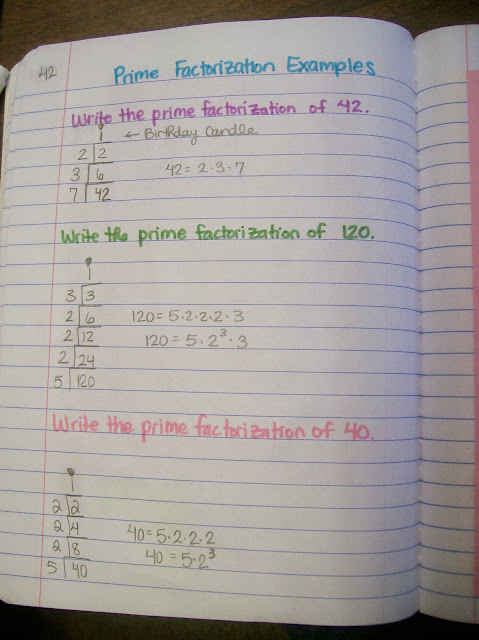 42
Prime Factorization Examples
Write the prime factorization of 42.
1 ← Birthday Candle
2 2
3 6 42 = 2·3·7
7 42
Write the prime factorization of 120.
1
3 3
2 6 120 = 5·2·2·2·3
2 12 120 = 5·2³·3
2 24
5 120
Write the prime factorization of 40.
1
2 2
2 4 40 = 5·2·2·2
2 8 40 = 5·2³
5 40